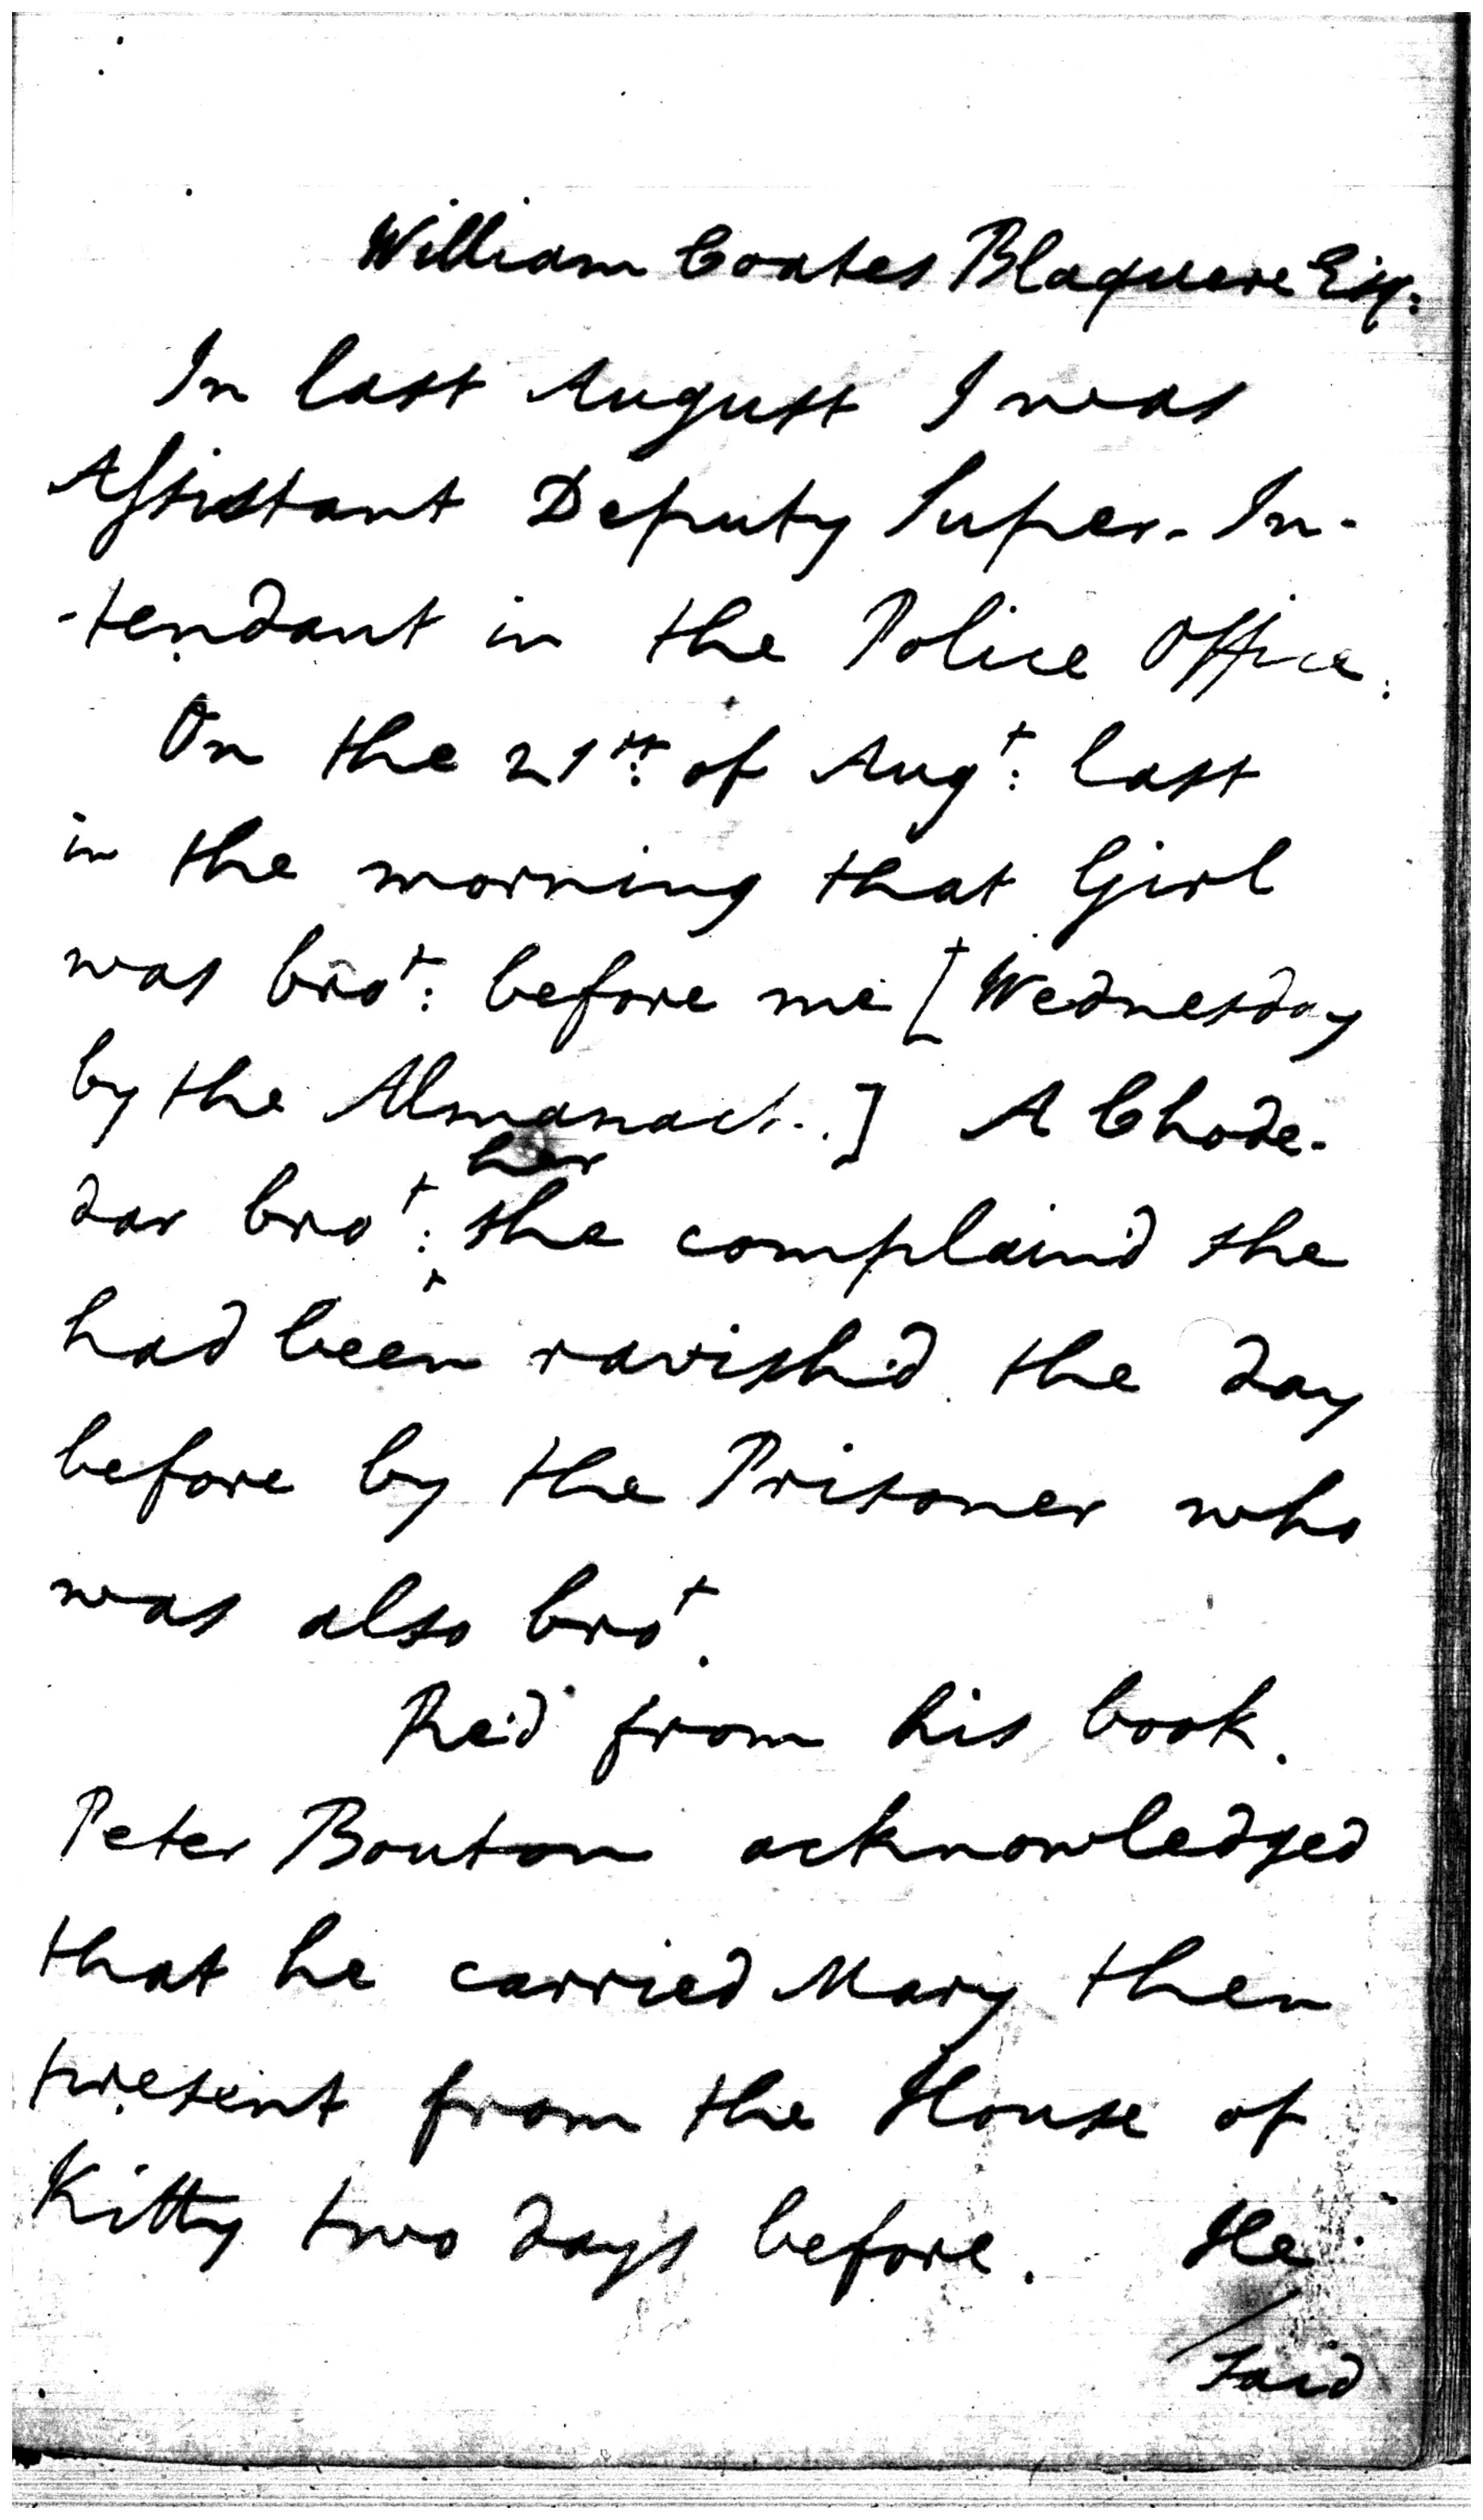 William Coates Blaquiere Esq:
In last August I was
Assistant Deputy Super-In-
-tendant in the Police Office.
On the 21st: of Augt: last
in the morning that Girl
was brot: before me [Wednesday
by the Almanack.] A Chode-
her
dar brot: she complain'd she
had been ravish'd the day
before by the Prisoner who
was also brot.
Re'd from his book.
Peter Bouton acknowledged
that he carried Mary then
present from the House of
Kitty two days before. He
/said